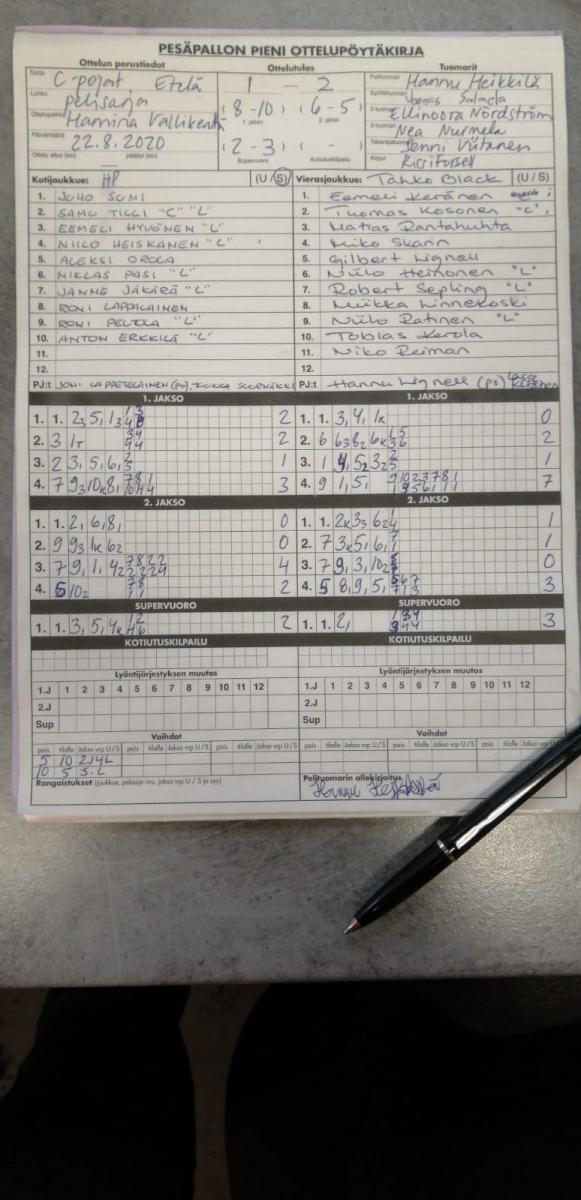 PESÄPALLON PIENI OTTELUPÖYTÄKIRJA
Ottelun perustiedot Ottelutulos Tuomarit
Sarja C-pojat Etelä 1 - 2 Pelituomari Hannu Heikkilä
Lohko pelisarja (8-10) (6-5) Syöttötuomari Joonas Salmela
Ottelupaikka Hamina Vallikenttä 1. jakso 2. jakso 2-tuomari Ellinoora Nordström
3-tuomari Nea Nurmela
Päivämäärä 22.8.2020 (2-3) ( - ) Takarajatuomari Jenni Viitanen
Ottelu alkoi (klo) päättyi (klo) Supervuoro Kotiutuskilpailu Kirjuri
Kotijoukkue: HP (U/S) Vierasjoukkue: Tahko Black (U/S)
1. JUHO SUNI 1. Eemeli Keränen
2. SAMU TILLI "C" "L" 2. Tuomas Kosonen "C"
3. EEMELI HYVÖNEN "L" 3. Matias Rantahuhta
4. NIILO HEISKANEN "L" 4. Miko Skarin
5. ALEKSI OROLA 5. Gilbert Lignell
6. NIKLAS PASI "L" 6. Niilo Heinonen "L"
7. JANNE JÄKÄRÄ "L" 7. Robert Sepling "L"
8. RONI LAPPALAINEN 8. Miikka Linnekoski
9. RONI PELTOLA "L" 9. Niilo Ratinen "L"
10. ANTON ERKKILÄ "L" 10. Tobias Kerola
11. 11. Niko Reiman
12. 12.
PJ:t JONI LAPPETELÄINEN (PJ), PJ:t Hannu Lignell (PJ)
1. JAKSO 1. JAKSO
1. 1. 2 1. 1. 3, 4, 1k 0
2. 3 1T 2 2. 6 2
3. 2 3, 5, 6, 1 3. 1 1
4. 7 3 4. 9 1, 5, 7
2. JAKSO 2. JAKSO
1. 1. 2, 6, 8, 0 1. 1. 1
2. 9 0 2. 7 1
3. 7 9, 1, 4 3. 7 9, 3, 10 0
4. 5 10 2 4. 5 8, 9, 5, 3
SUPERVUORO SUPERVUORO
1. 1. 3, 5, 4k 2 1. 1. 2, 3
KOTIUTUSKILPAILU KOTIUTUSKILPAILU
Lyöntijärjestyksen muutos Lyöntijärjestyksen muutos
1.J 1 2 3 4 5 6 7 8 9 10 11 12 1.J 1 2 3 4 5 6 7 8 9 10 11 12
2.J 2.J
Sup Sup
Vaihdot Vaihdot
pois tilalle Jakso vrp U/S pois tilalle Jakso vrp U/S pois tilalle Jakso vrp U/S pois tilalle Jakso vrp U/S
5 10 2J4L
10 5 S.L
Rangaistukset (joukkue, pelaaja nro, jakso vrp U / S ja syy) Pelituomarin allekirjoitus
Hannu Heikkilä